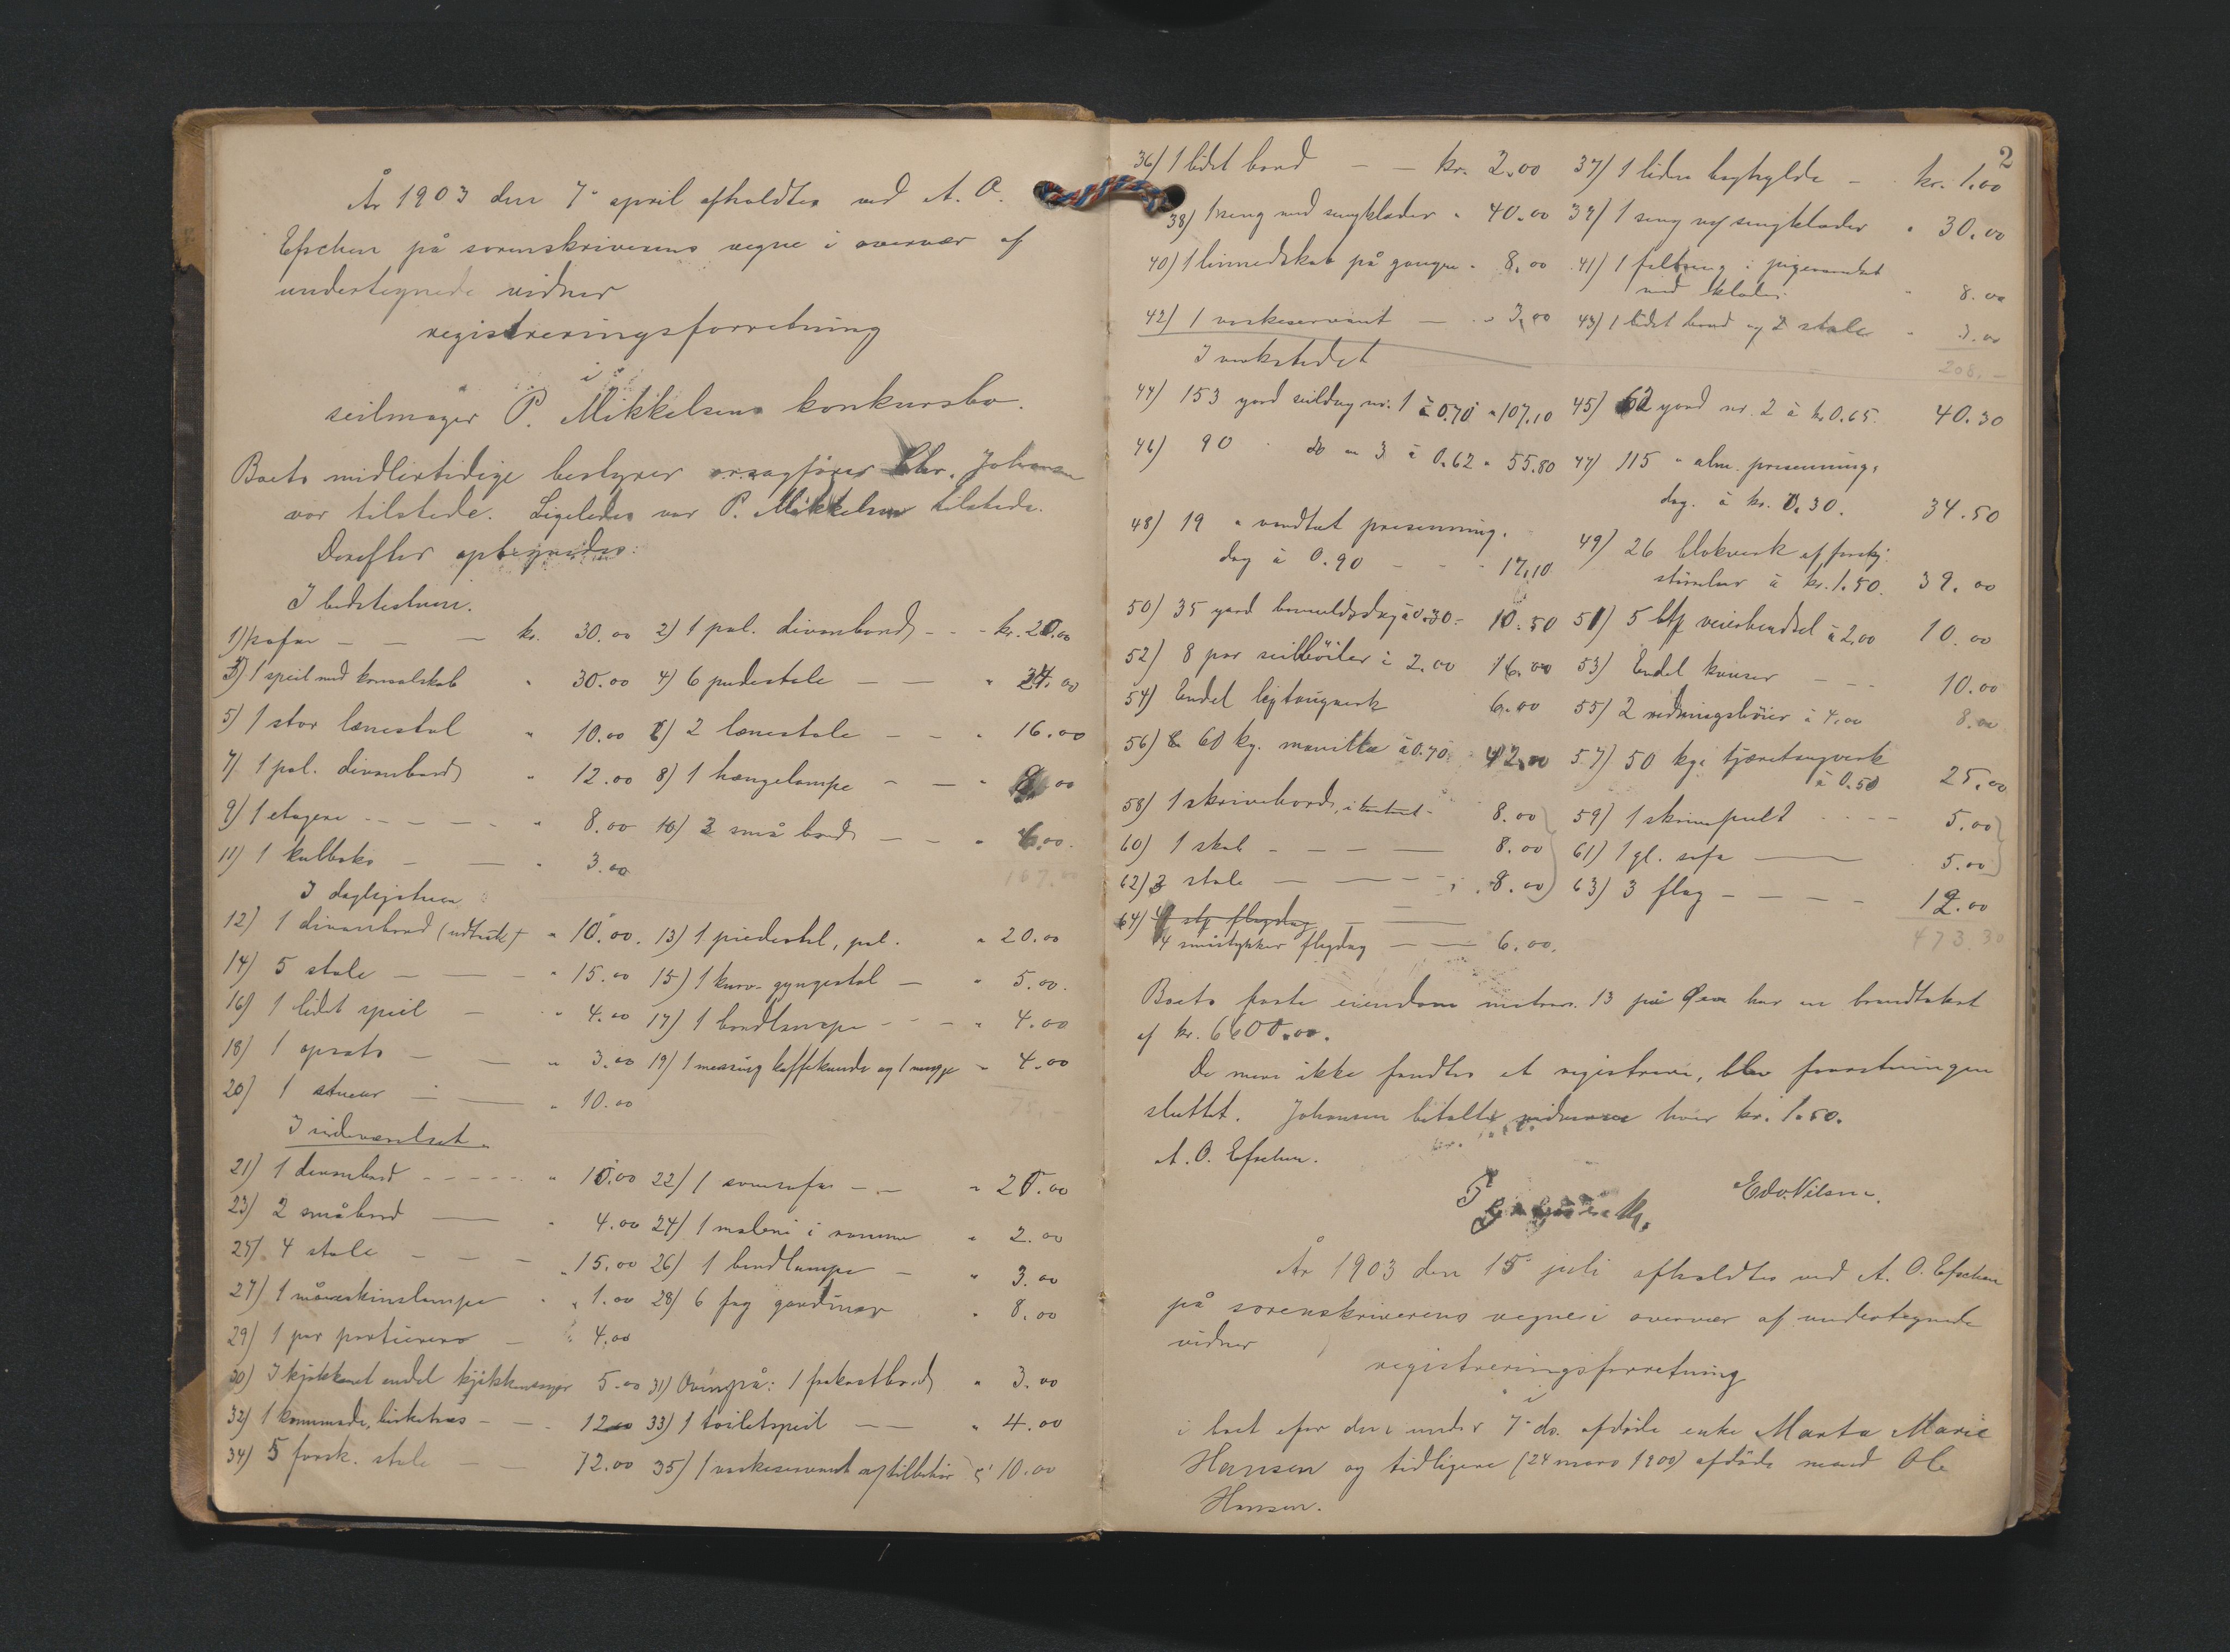 År 1903 den 7 april afholdtes ved A. O.
Efschen på sorenskriverens vegne i overvær af
undertegnede vidner
registreringsforretning
i
seilmager P. Mikkelsens konkursbo.
Boets midlertidige bestyrer overretssagfører Chr. Johansen
var tilstede. Ligeledes var P. Mikkelsen tilstede.
Derefter optegnedes:
I bedstestuen.
1) sofa — — — kr. 30.00 2) 1 pol. divanbord - - - kr. 20.00
3) 1 speil med konsolskab " 30.00 4) 6 pudestole — — " 24.00
5) 1 stor lænestol " 10.00 6) 2 lænestole — — " 16.00
7) 1 pol. divanbord " 12.00 8) 1 hængelampe — — " 8.00
9) 1 etagere - - - - " 8.00 10) 3 små bord — — " 6.00.
11) 1 kulboks — — " 3.00
167.00
I dagligstuen
12) 1 divanbord (udtræk) " 10.00. 13) 1 piedestal, pol. " 20.00
14) 5 stole — — - " 15.00 15) 1 kurv-gyngestol — " 5.00.
16) 1 lidet speil — " 4.00 17) 1 bordlampe - - - " 4.00
18) 1 opsats — — " 3.00 19) 1 messing kaffekande og 1 mugge " 4.00
20) 1 stueur — — " 10.00
75.-
I sideværelset.
21) 1 divanbord - - - - - " 10.00 22) 1 sovesofa - - " 20.00
23) 2 småbord — " 4.00 24) 1 maleri i ramme " 2.00
25) 4 stole — — — " 15.00 26) 1 bordlampe — " 3.00
27) 1 måneskinslampe " 1.00 28) 6 fag gardiner " 8.00
29) 1 par portierers — " 4.00
30) I kjøkkenet endel kjøkkensager 5.00 31) Ovenpå: 1 frokostbord " 3.00
32) 1 kommode, birketræs — — 12.00 33) 1 toiletspeil — — " 4.00
34) 5 forsk. stole — — 12.00 35) 1 vaskeservant og tilbehør " 10.00
2
36) 1 lidet bord — — kr. 2.00 37) 1 liden boghylde — kr. 1.00
38) 1 seng med sengklæder " 40.00 39) 1 seng m/ sengklæder " 30.00
40) 1 linnedskab på gangen " 8.00 41) 1 feltseng i pigeværelset
med klæder " 8.00
42) 1 vaskeservant — " 3.00 43) 1 lidet bord og 2 stole " 3.00
208.-
I verkstedet
44) 153 yard seildug nr. 1 à 0.70 " 107.10 45) 62 yard nr. 2 à kr. 0.65. 40.30
46) 90 " do " 3 à 0.62 " 55.80 47) 115 " alm. presennings
dug. à kr. 0.30. 34.50
48) 19 " vandtæt presennings
dug à 0.90 - - - 17.10
49) 26 blokverk af forskj.
størrelser à kr. 1.50. 39.00
50) 35 yard bomuldsdug à 0.30 = 10.50 51) 5 veierhendsel à 2.00 10.00
52) 8 par seilbøiler à 2.00 16.00 53) Endel kouser — — 10.00
54) Endel ligtougverk 6.00 55) 2 redningsbøier à 4.00 8.00
56) 60 kg. manilla à 0.70. 42.00 57) 50 kg. tjæretougverk
à 0.50 25.00
58) 1 skrivebord, i kontoret - 8.00 59) 1 skrivepult - - - - 5.00
60) 1 skab - - - — 8.00 61) 1 gl. sofa — 5.00
62) 3 stole — — - - 8.00 63) 3 flag - - - - 12.00
64) 4 stk flagdug — —
4 småstykker flagdug — — 6.00.
473.30
Boets faste eiendom matrnr. 13 på Øen har en brandtakst
af kr. 6600.00.
Da mere ikke fandtes at registrere, blev forretningen
sluttet. Johansen betalte vidnerne hver kr. 1.50.
A. O. Efschen.
Edv. Nilsen.
År 1903 den 15 juli afholdtes ved A. O. Efschen
på sorenskriverens vegne i overvær af undertegnede
vidner
registreringsforretning
i
i boet efter den under 7 ds. afdøde enke Marta Marie
Hansen og tidligere (24 mars 1900) afdøde mand Ole
Hansen.